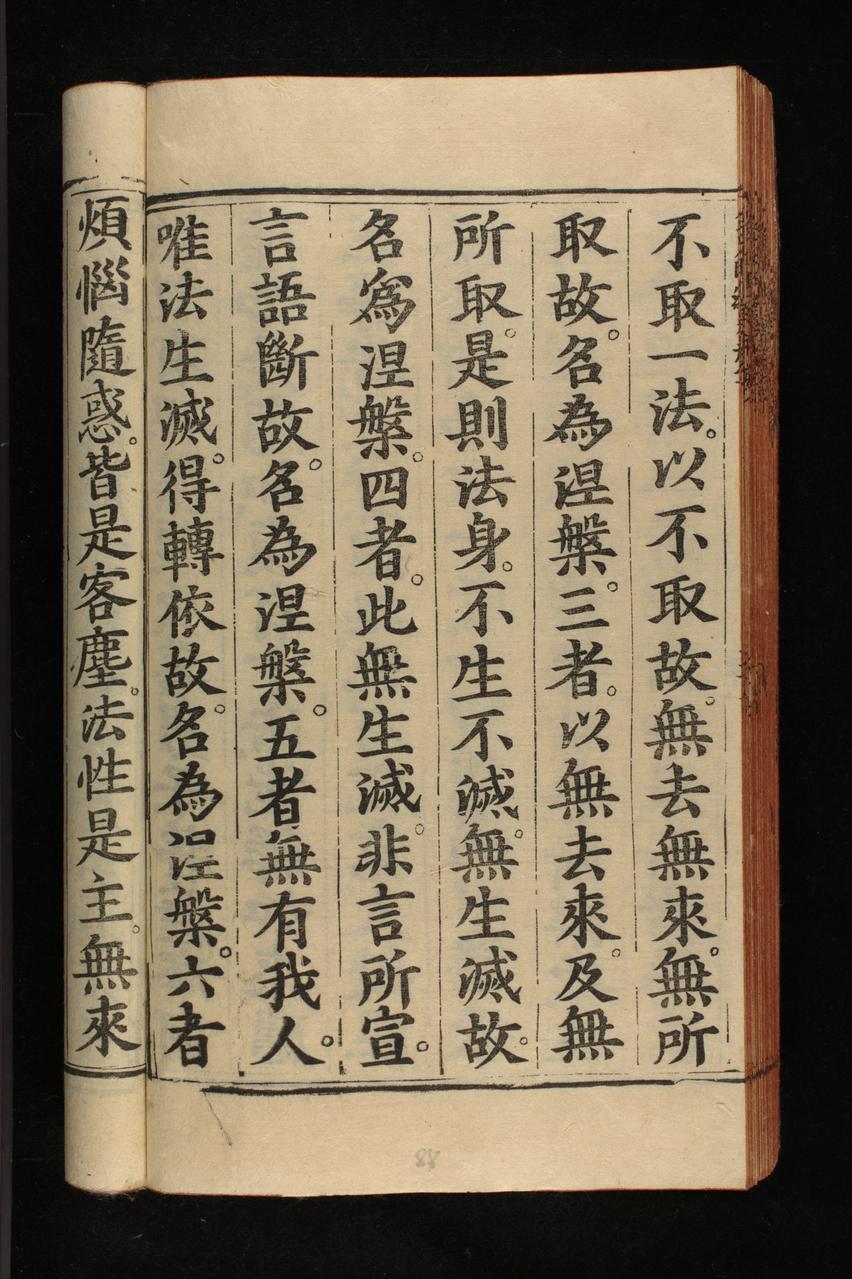 不取一法。以不取故。無去無來。無所
取故。名為涅槃。三者。以無去來。及無
所取。是則法身。不生不滅。無生滅故。
名爲涅槃。四者。此無生滅。非言所宣。
言語斷故。名為涅槃。五者無有我人。
唯法生滅。得轉依故。名為涅槃。六者
煩惱隨惑。皆是客塵。法性是主。無來
88